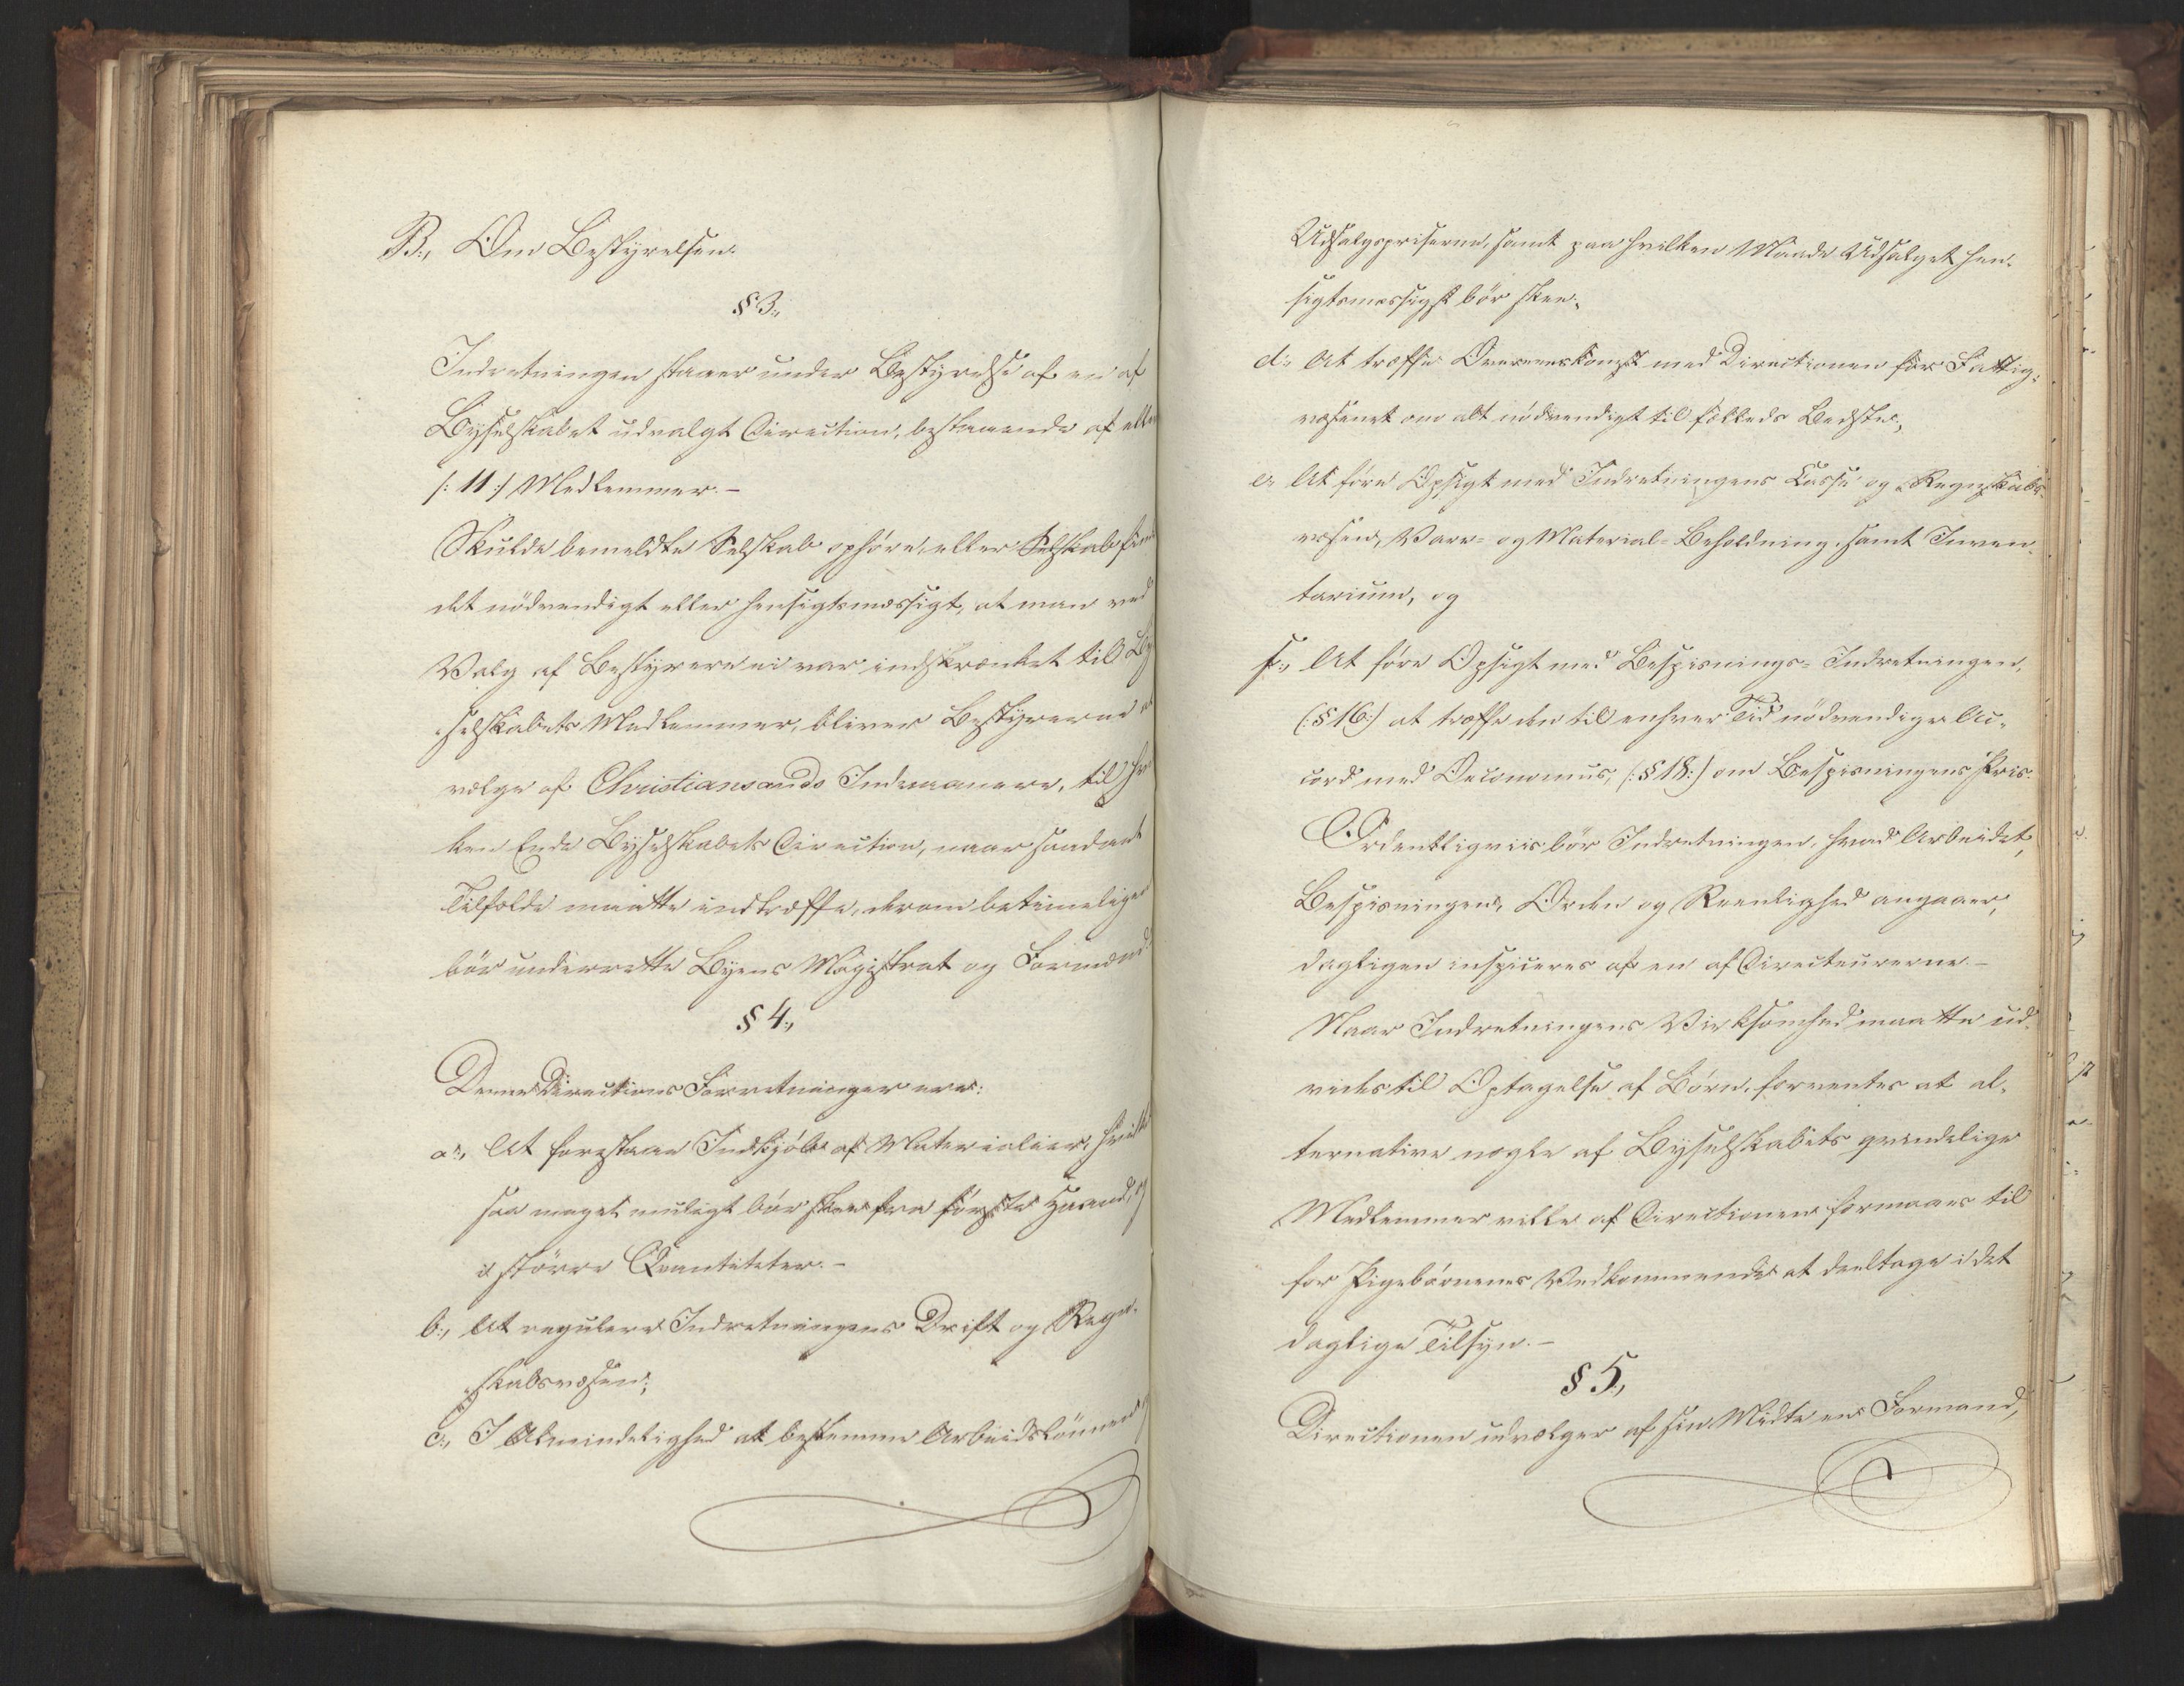 B., Om Bestyrelsen.
§ 3.,
Indretningen staaer under Bestyrelse af en af
Byselskabet udvalgt Direction, bestaaende af
/: 11 :/ Medlemmer. –
Skulde bemeldte Selskab ophøre, eller Selskab
det nödvendigt eller hensigtsmæssigt, at man ved
Valg af Bestyrere ei var indskrænket til
selskabets Medlemmer, bliver Bestyrerne at
vælge af Christiansands Indvaanere, til
ken Ende Byselskabets Direction, naar saadant
Tilfælde maatte indtræffe, derom betimeligen
bör underrette Byens Magistrat og Formænd
§ 4.,
Denne Directions Forretninger ere:
a., At forestaae Indkjöb af Materialier,
saa meget muligt bör skee fra förste Haand, og
i större Qvantiteter. –
b., At regulere Indretningens Drift og Regn-
skabsvæsen;
c., I Almindelighed at bestemme Arbeidslönnen
Udsalgspriserne, samt paa hvilken Maade Udsalget hen-
sigtsmæssigst bör skee.
d., At træffe Overeenskomst med Directionen for Fattig-
væsenet om alt nödvendigt til fælleds Bedste,
e., At före Opsigt med Indretningens Casse og Regnskabs-
væsen, Vare- og Material-Beholdning, samt Inven-
tarium, og
f., At före Opsigt med Bespisnings-Indretningen,
(:§ 16:) at træffe den til enhver Tid nödvendige Ac-
cord med Oeconomus, (:§ 18:) om Bespisningens Priis.
Ordentligviis bör Indretningen, hvad Arbeidet,
Bespisningen, Orden og Reenlighed angaaer,
dagligen inspiceres af en af Directeurerne. –
Naar Indretningens Virksomhed maatte ud-
vides til Optagelse af Börn, forventes at al-
ternative nogle af Byselskabets qvindelige
Medlemmer ville af Directionen formaaes til
for Pigebörnenes Vedkommende at deeltage i det
daglige Tilsyn. –
§ 5.,
Directionen udvælger af sin Midte en Formand,